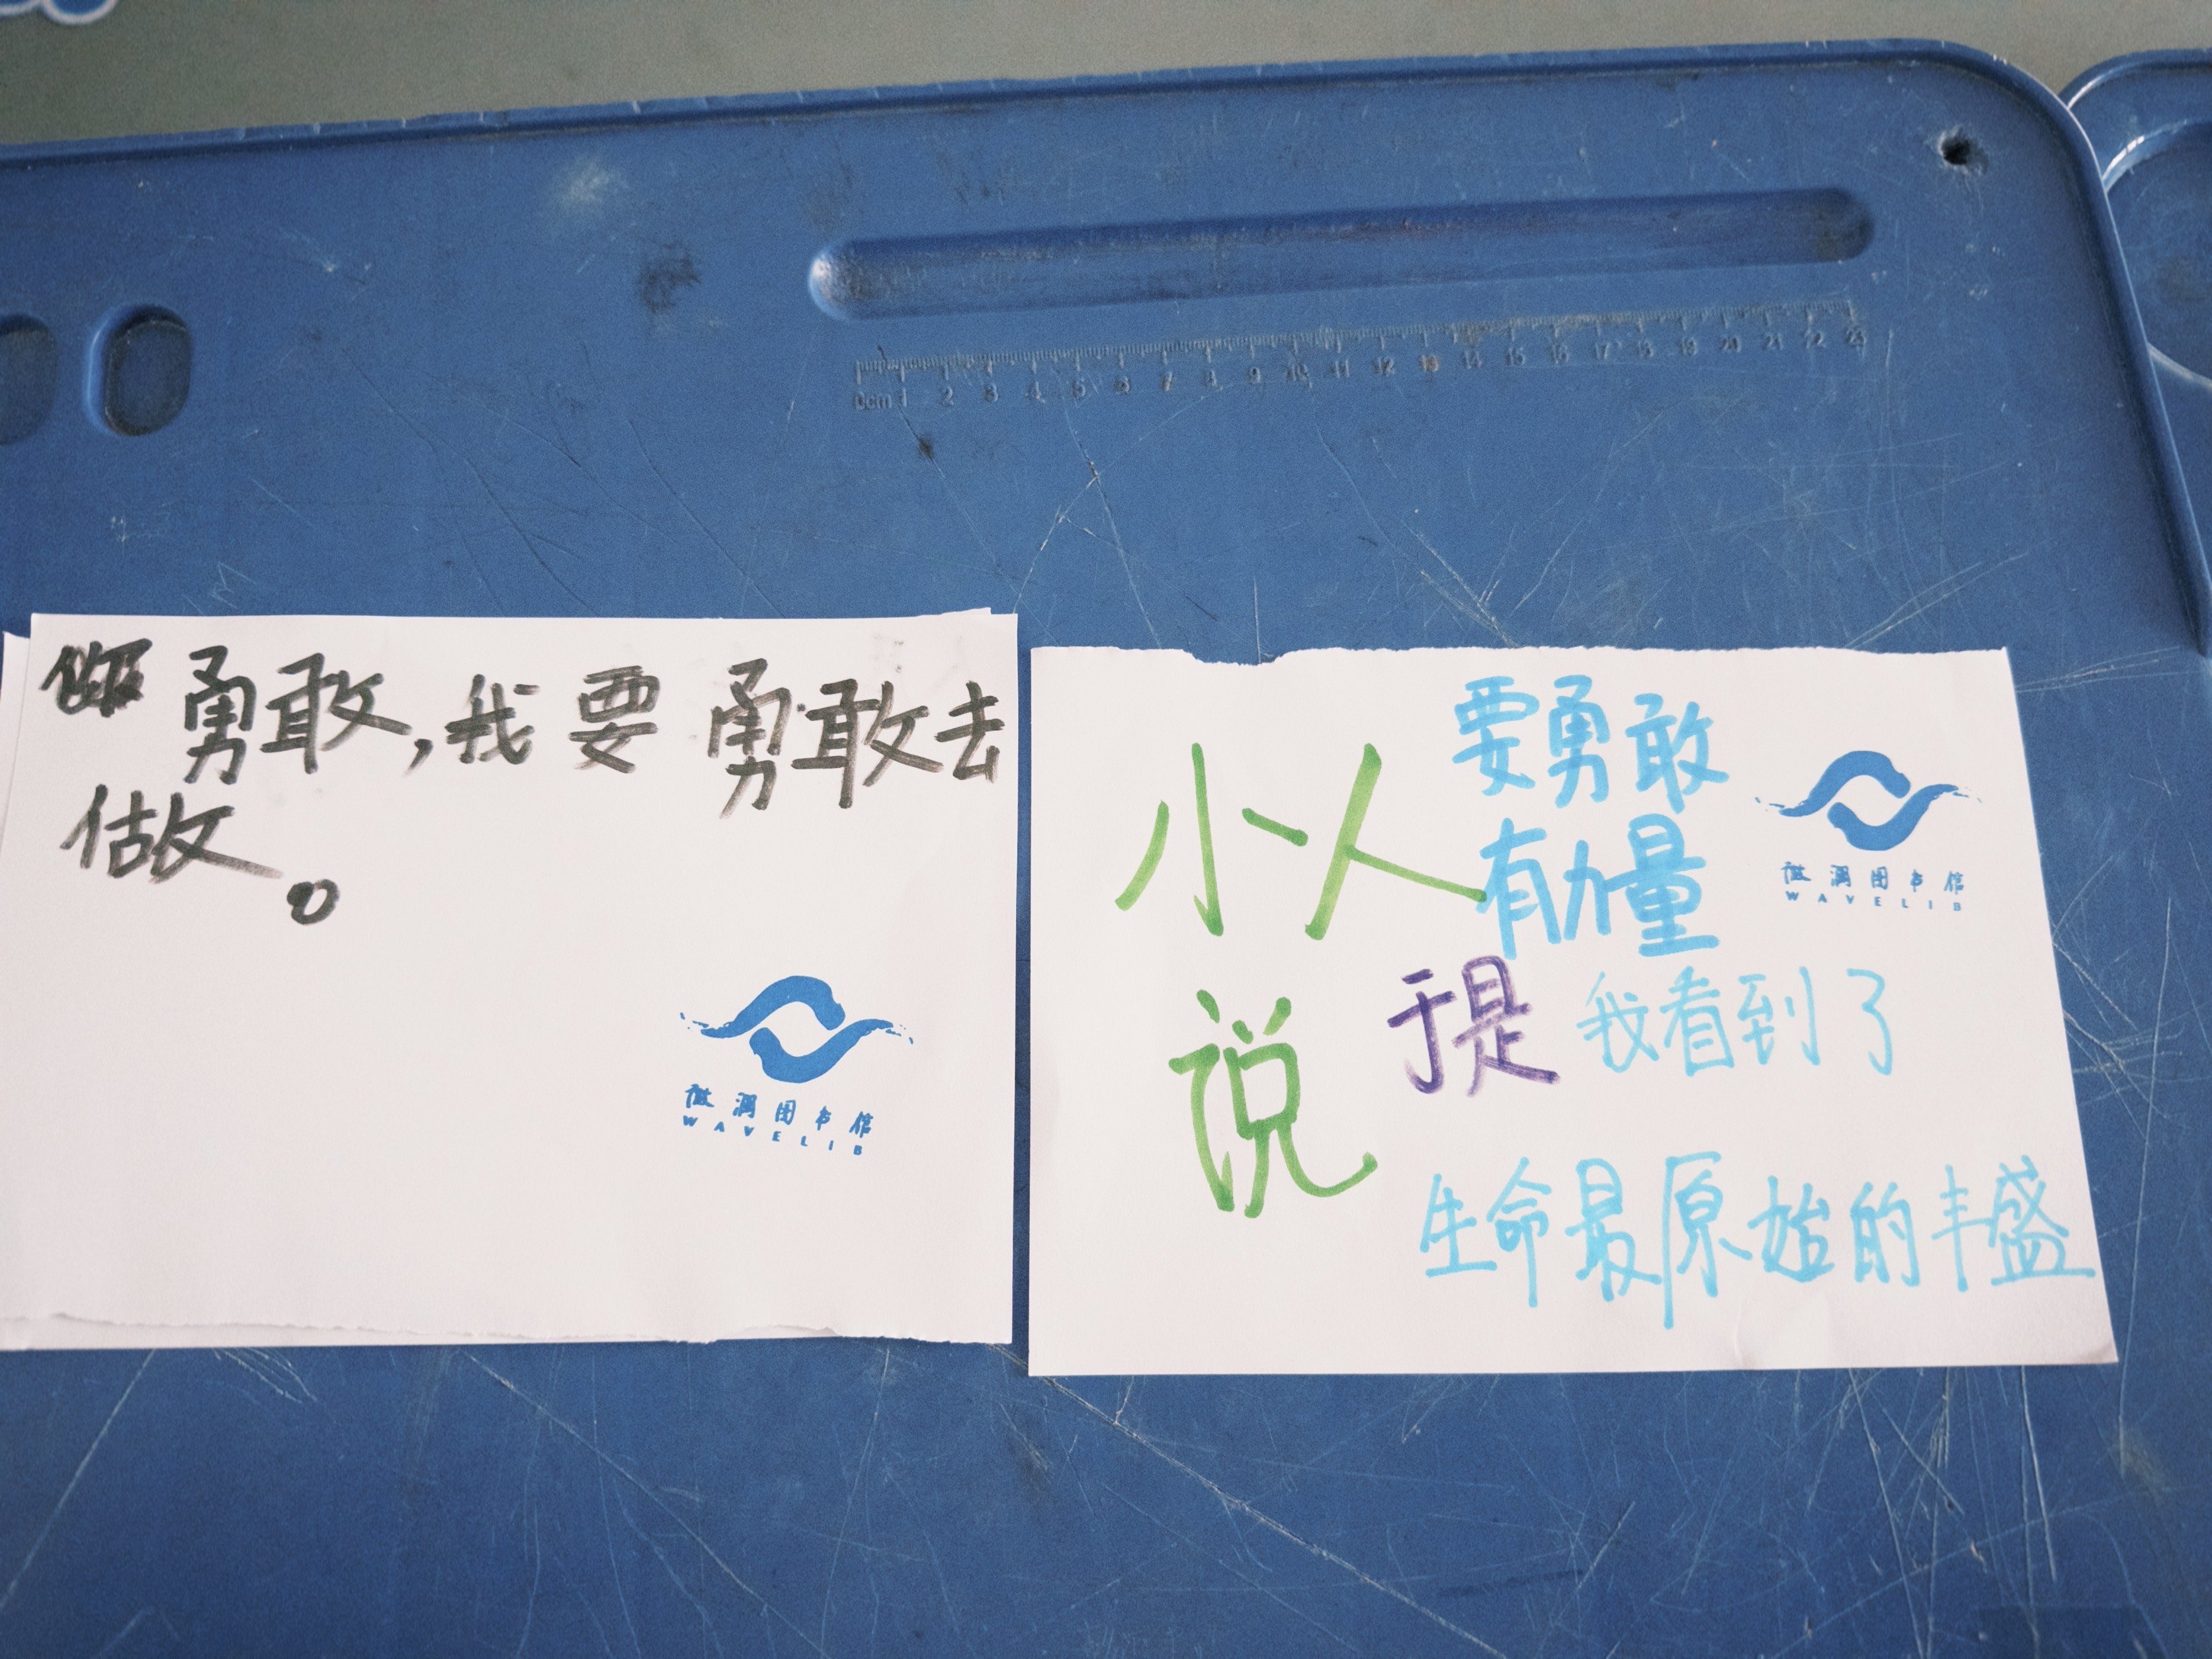 勇敢，我要勇敢去
做。
图书馆
WAVELIB
小人
说
要勇敢
有力量
于是我看到了
生命最原始的丰盛
图书馆
WAVELIB
0cm 1 2 3 4 5 6 7 8 9 10 11 12 13 14 15 16 17 18 19 20 21 22 23